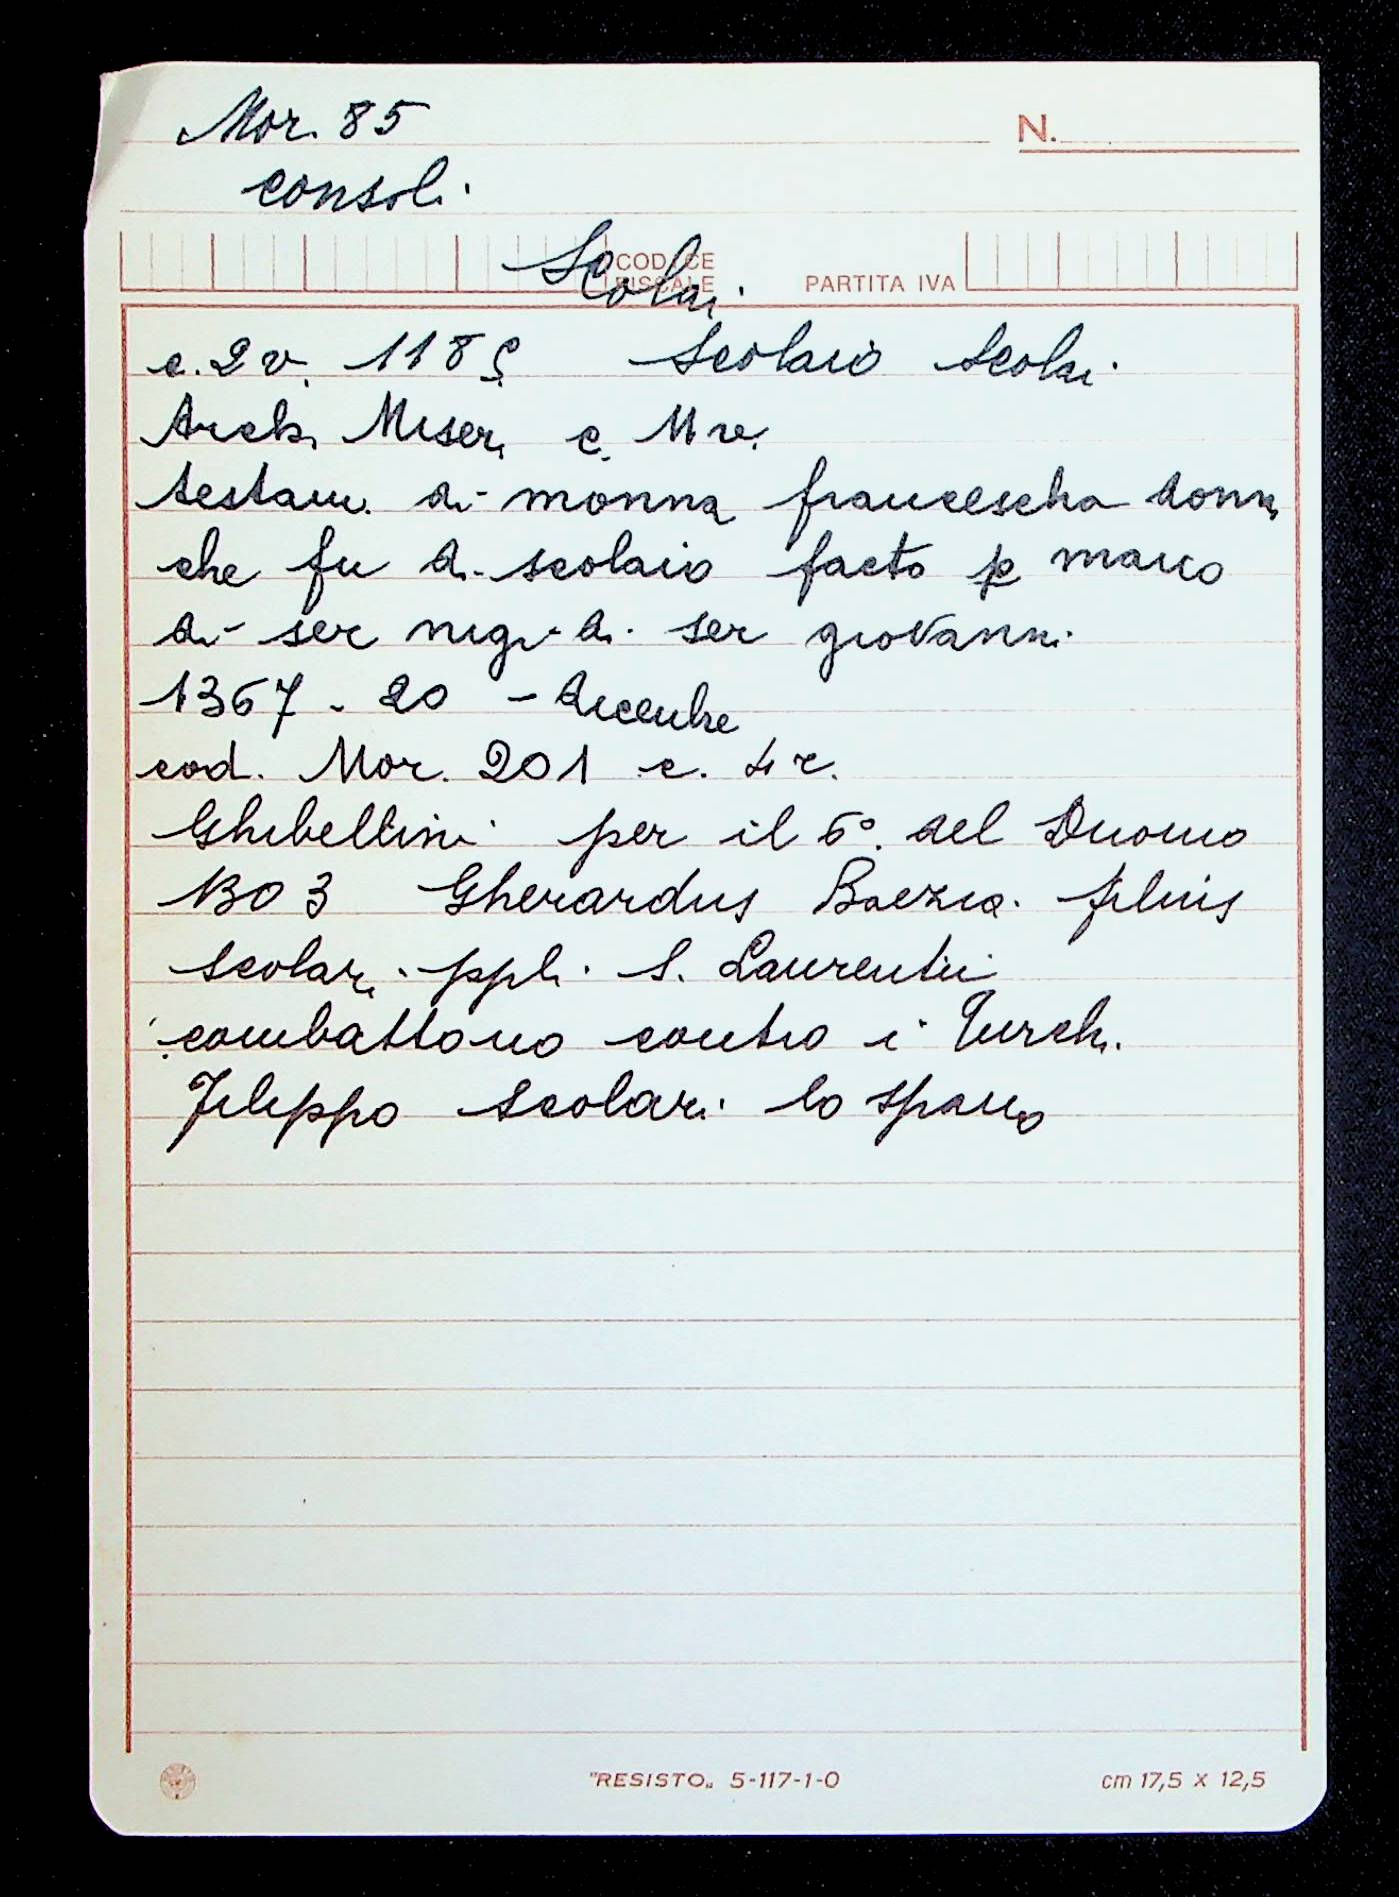 Mor. 85
N.
consoli
Scolai
CODICE FISCALE PARTITA IVA
c. 2 v. 118ς Scolaio Scolai
Arch. Miser. c. 11 v.
testam. di monna francescha donna
che fu di scolaio facto p marco
di ser nigi di ser giovanni
1367 - 20 - dicembre
cod. Mor. 201 c. 4 r.
Ghibellini per il 6°. del Duomo
1303 Gherardus filius
scolari. ppli. S. Laurentii
combattono contro i Turchi.
Filippo Scolari lo spano
"RESISTO„ 5-117-1-0
cm 17,5 x 12,5